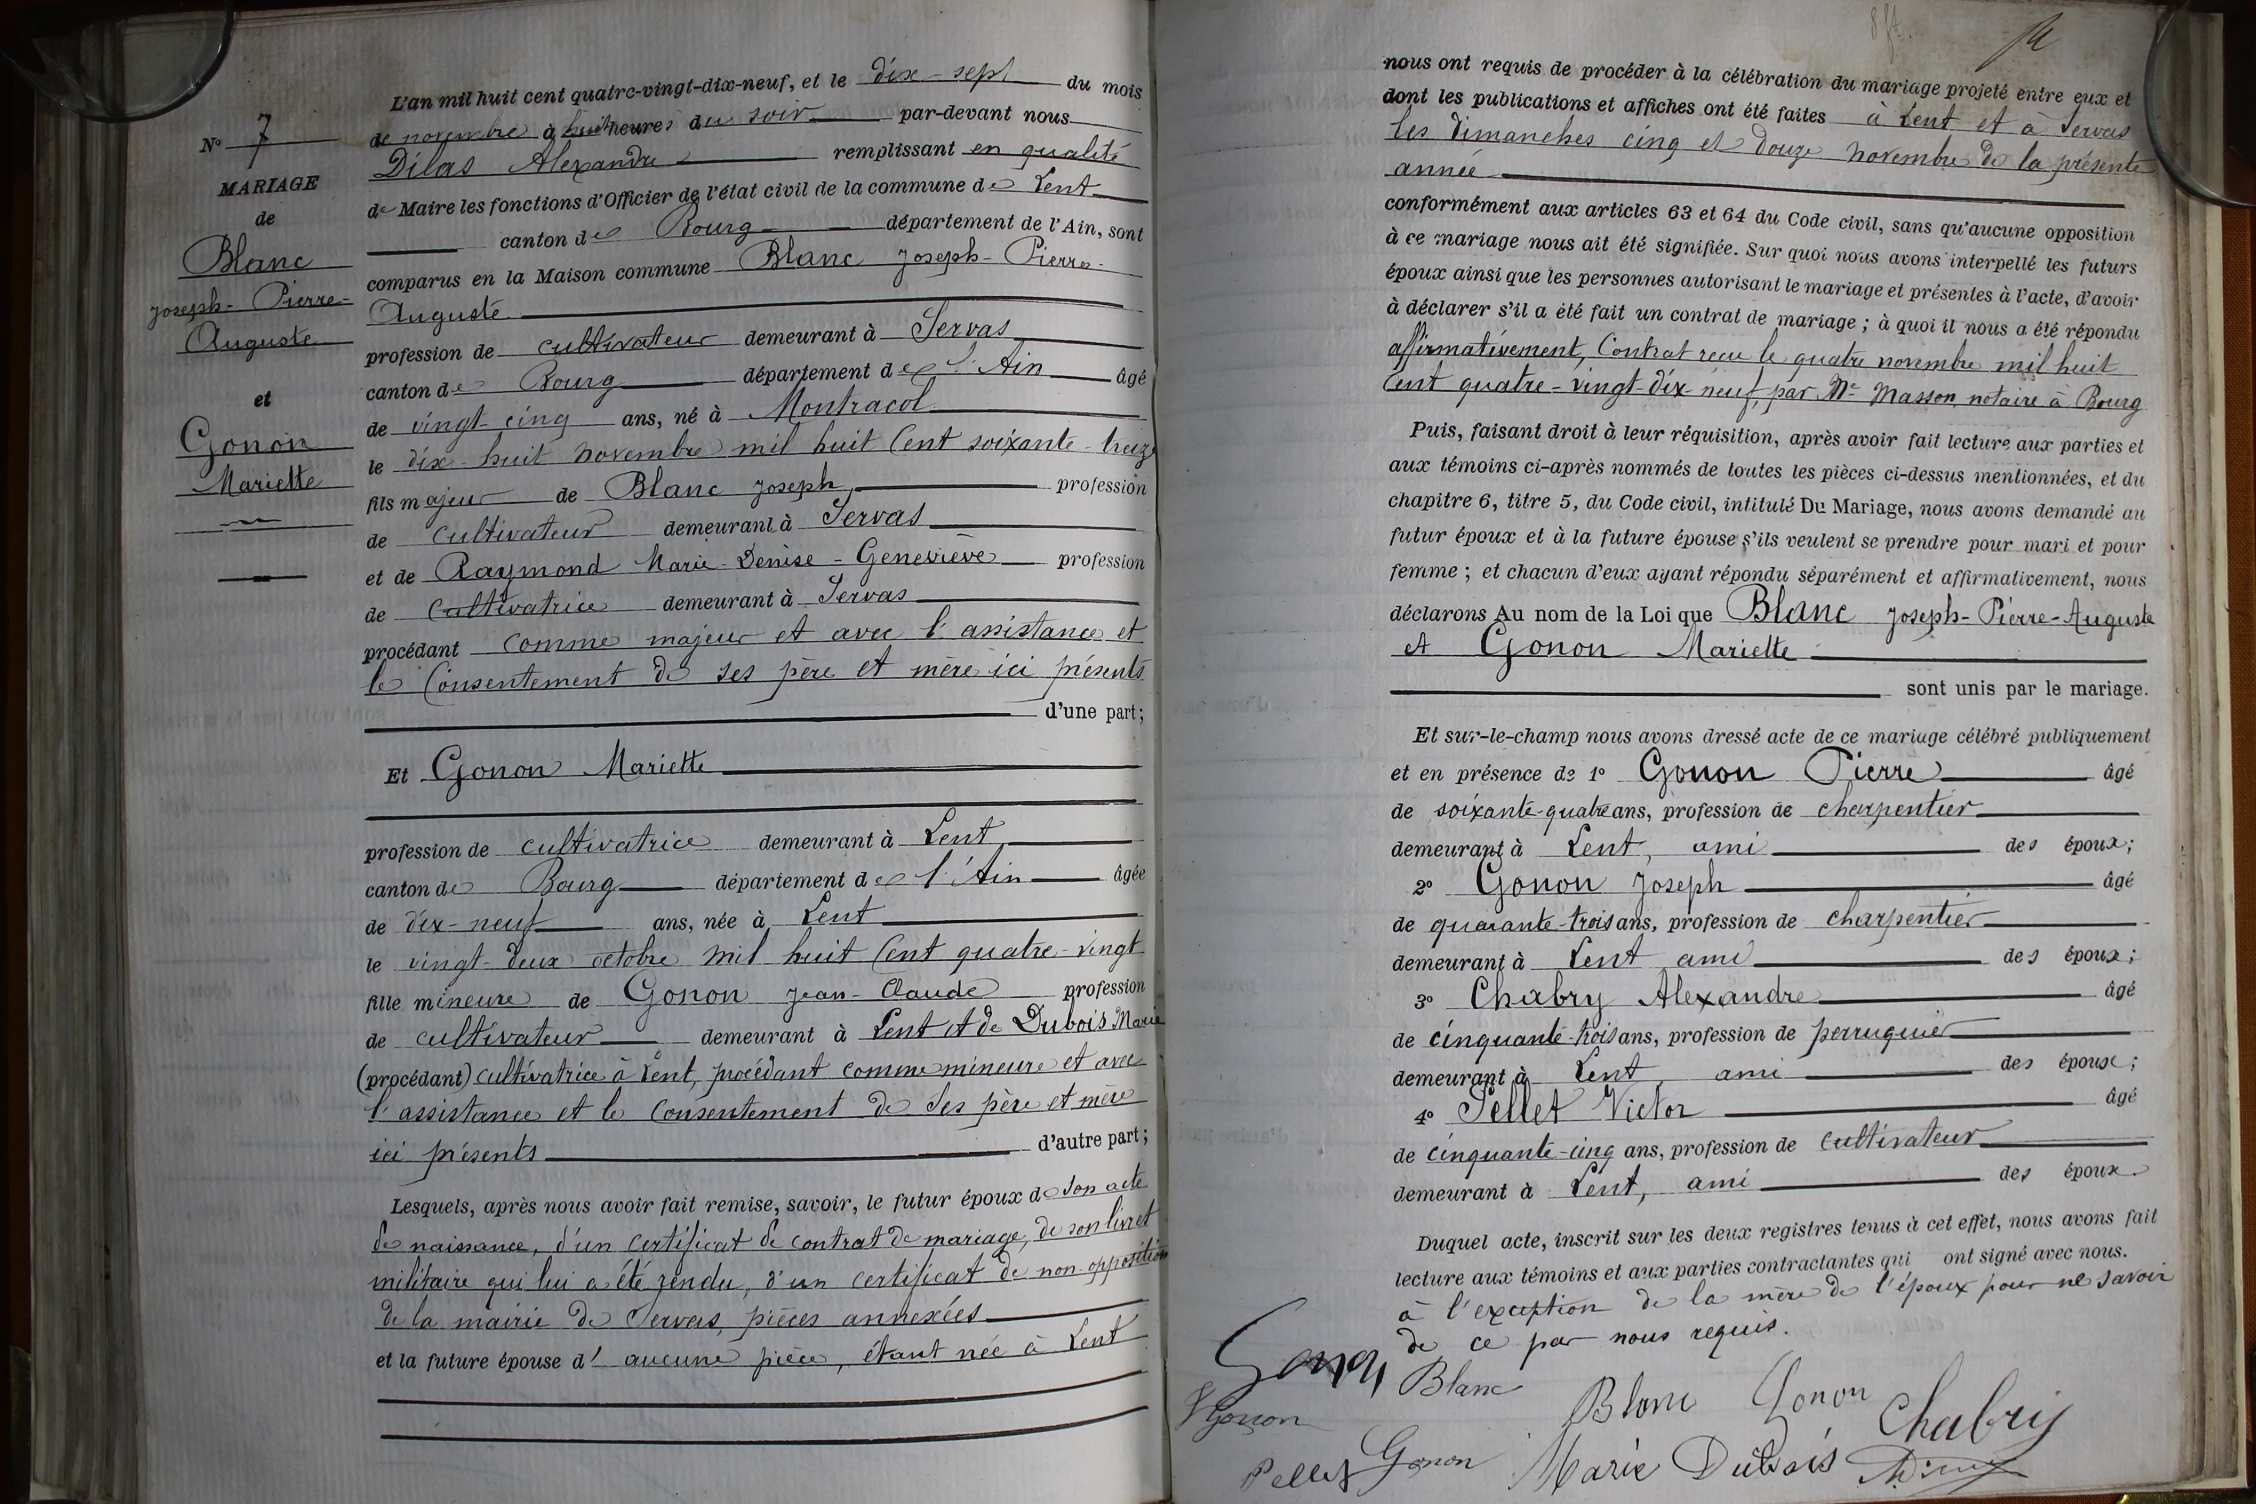 N° 7
MARIAGE
de
Blanc
Joseph-Pierre-
Auguste
et
Gonon
Mariette
L'an mil huit cent quatre-vingt-dix-neuf, et le dix-sept du mois
de novembre à huit heures du soir par-devant nous
Dilas Alexandre remplissant en qualité
de Maire les fonctions d'Officier de l'état civil de la commune de Lent
canton de Bourg département de l'Ain, sont
comparus en la Maison commune Blanc Joseph-Pierre-
Auguste
profession de cultivateur demeurant à Servas
canton de Bourg département de l'Ain âgé
de vingt-cinq ans, né à Montracol
le dix-huit novembre mil huit cent soixante-treize
fils majeur de Blanc Joseph profession
de cultivateur demeurant à Servas
et de Raymond Marie-Denise-Geneviève profession
de cultivatrice demeurant à Servas
procédant comme majeur et avec l'assistance et
le consentement de ses père et mère ici présents
d'une part;
Et Gonon Mariette
profession de cultivatrice demeurant à Lent
canton de Bourg département de l'Ain âgée
de dix-neuf ans, née à Lent
le vingt-deux octobre mil huit cent quatre-vingt
fille mineure de Gonon Jean-Claude profession
de cultivateur demeurant à Lent et de Dubois Marie
(procédant) cultivatrice à Lent, procédant comme mineure et avec
l'assistance et le consentement de ses père et mère
ici présents d'autre part;
Lesquels, après nous avoir fait remise, savoir, le futur époux de son acte
de naissance, d'un certificat de contrat de mariage, de son livret
militaire qui lui a été rendu, d'un certificat de non-opposition
de la mairie de Servas, pièces annexées
et la future épouse d'aucune pièce, étant née à Lent
nous ont requis de procéder à la célébration du mariage projeté entre eux et
dont les publications et affiches ont été faites à Lent et à Servas
les dimanches cinq et douze novembre de la présente
année
conformément aux articles 63 et 64 du Code civil, sans qu'aucune opposition
à ce mariage nous ait été signifiée. Sur quoi nous avons interpellé les futurs
époux ainsi que les personnes autorisant le mariage et présentes à l'acte, d'avoir
à déclarer s'il a été fait un contrat de mariage; à quoi il nous a été répondu
affirmativement, Contrat reçu le quatre novembre mil huit
cent quatre-vingt-dix-neuf, par Me Masson, notaire à Bourg
Puis, faisant droit à leur réquisition, après avoir fait lecture aux parties et
aux témoins ci-après nommés de toutes les pièces ci-dessus mentionnées, et du
chapitre 6, titre 5, du Code civil, intitulé Du Mariage, nous avons demandé au
futur époux et à la future épouse s'ils veulent se prendre pour mari et pour
femme; et chacun d'eux ayant répondu séparément et affirmativement, nous
déclarons Au nom de la Loi que Blanc Joseph-Pierre-Auguste
et Gonon Mariette
sont unis par le mariage.
Et sur-le-champ nous avons dressé acte de ce mariage célébré publiquement
et en présence de 1° Gonon Pierre âgé
de soixante-quatre ans, profession de charpentier
demeurant à Lent, ami des époux;
2° Gonon Joseph âgé
de quarante-trois ans, profession de charpentier
demeurant à Lent ami des époux;
3° Chabry Alexandre âgé
de cinquante-trois ans, profession de perruquier
demeurant à Lent ami des époux;
4° Pellet Victor âgé
de cinquante-cinq ans, profession de cultivateur
demeurant à Lent, ami des époux.
Duquel acte, inscrit sur les deux registres tenus à cet effet, nous avons fait
lecture aux témoins et aux parties contractantes qui ont signé avec nous.
à l'exception de la mère de l'époux pour ne savoir
de ce par nous requis.
Gonon Blanc Blanc Gonon Chabry
Gonon
Pellet Gonon Marie Dubois